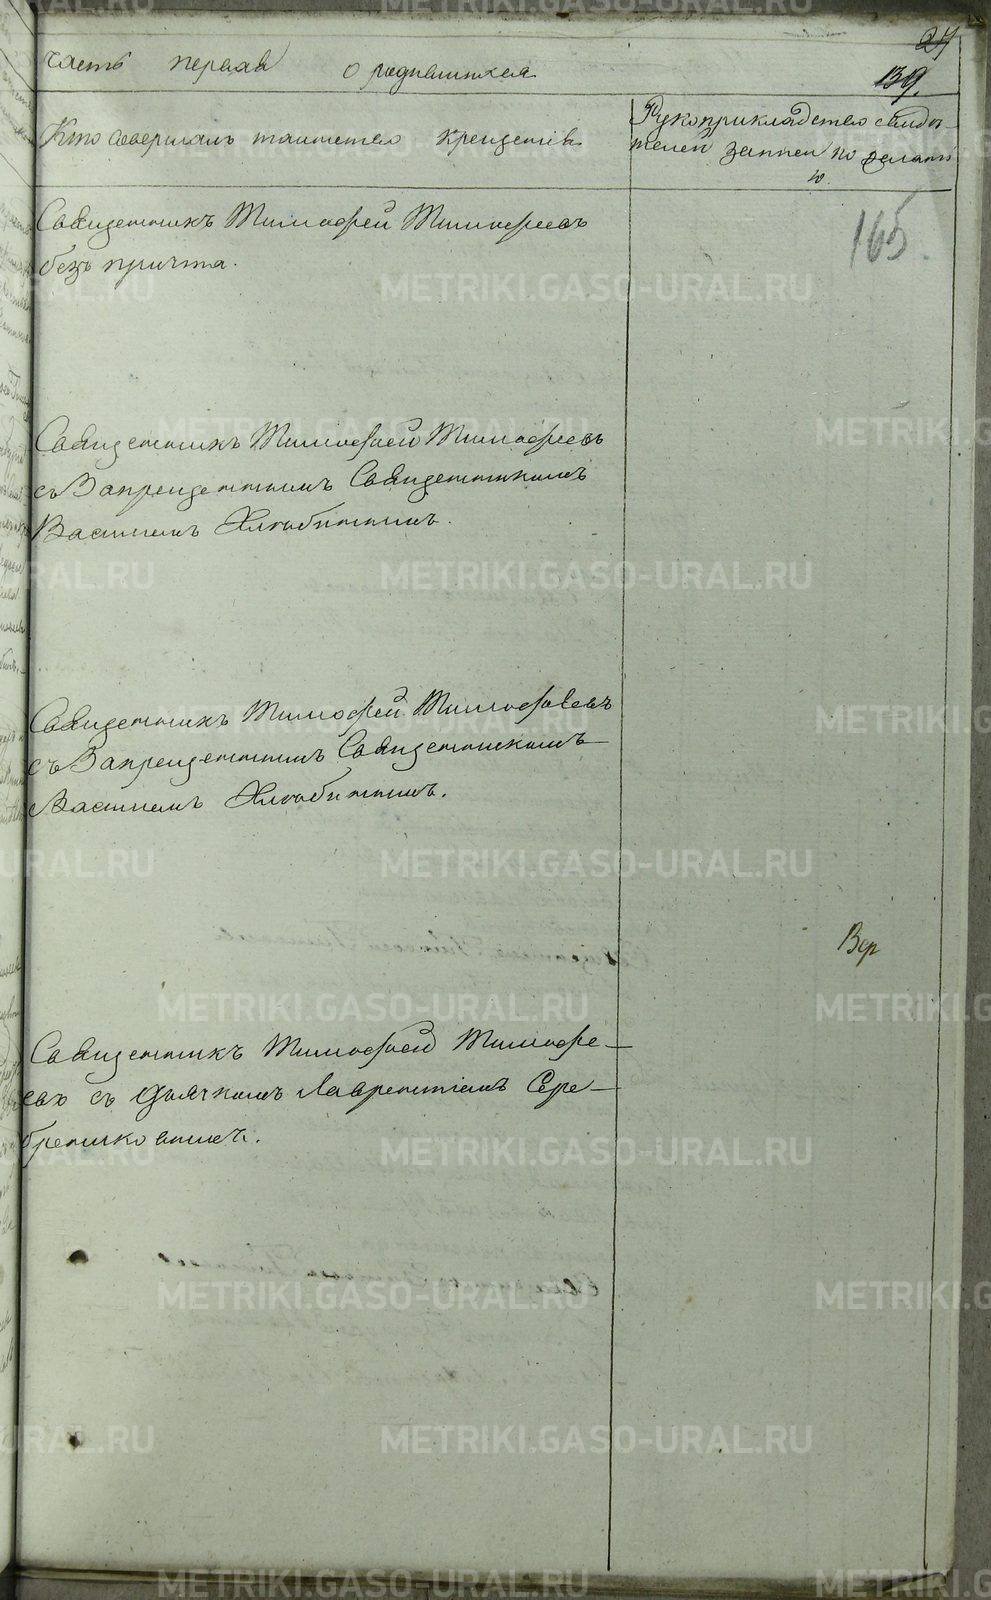 27
часть первая о родившихся
139.
Кто совершалъ таинство крещенія
Рукоприкладство свидѣ-
телей записи по желані
ю
165.
Священникъ Тимофей Тимофеевъ
безъ причта.
Священникъ Тимофей Тимофеевъ
съ Запрещеннымъ Священникомъ
Василіемъ Хлюбинымъ.
Священникъ Тимофей Тимофеевъ
съ Запрещеннымъ Священникомъ
Василіемъ Хлюбинымъ.
Вер
Священникъ Тимофей Тимофе-
евъ съ дьячкомъ Лаврентіемъ Сере-
бренниковымъ.
METRIKI.GASO-URAL.RU